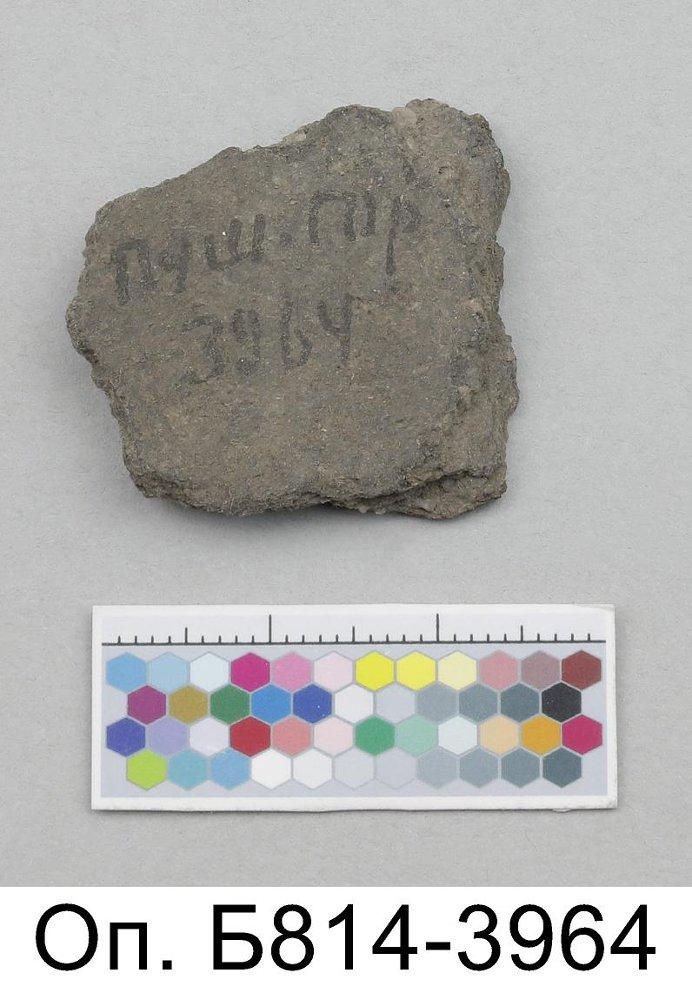 Пуш. Пр
3964
Оп. Б814-3964